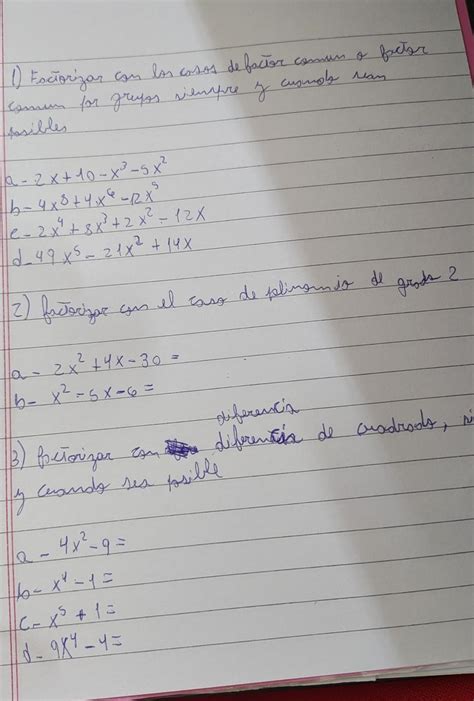 1) Factorizar con los casos de factor comun o factor
comun por grupos siempre y cuando sean
posibles
a - 2x + 10 - x³ - 5x²
b - 4x⁸ + 4x⁶ - 12x⁵
c - 2x⁴ + 8x³ + 2x² - 12x
d - 49x⁵ - 21x² + 14x
2) factorizar con el caso de polinomio de grado 2
a - 2x² + 4x - 30 =
b - x² - 5x - 6 =
diferencia
3) factorizar con diferencia de cuadrado,
y cuando sea posible
a - 4x² - 9 =
b - x⁴ - 1 =
c - x⁵ + 1 =
d - 9x⁴ - 4 =